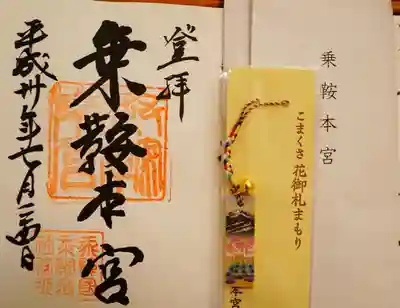 登拝
乗鞍本宮
平成卅年七月二四日
乗鞍本宮
こまくさ 花御札まもり
本宮